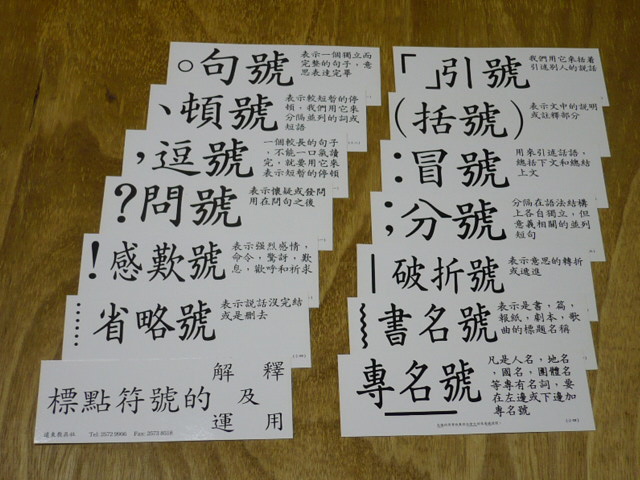 。句號
表示一個獨立而
完整的句子，意
思表達完畢
、頓號
表示較短暫的停
頓，我們用它來
分隔並列的詞或
短語
，逗號
一個較長的句子
，不能一口氣讀
完，就要用它來
表示短暫的停頓
？問號
表示懷疑或發問
用在問句之後
！感歎號
表示強烈感情，
命令，驚訝，歎
息，歡呼和祈求
……省略號
表示說話沒完結
或是刪去
標點符號的
解釋
及
運用
遠東教具社 Tel: 2572 9906 Fax: 2573 8518
「」引號
我們用它來括着
引述別人的說話
（括號）
表示文中的說明
或註釋部分
：冒號
用來引述話語，
總括下文和總結
上文
；分號
分隔在語法結構
上各自獨立，但
意義相關的並列
短句
｜破折號
表示意思的轉折
或遞進
﹏書名號
表示是書，篇，
報紙，劇本，歌
曲的標題名稱
專名號
凡是人名，地名
，國名，團體名
等專有名詞，要
在左邊或下邊加
專名號